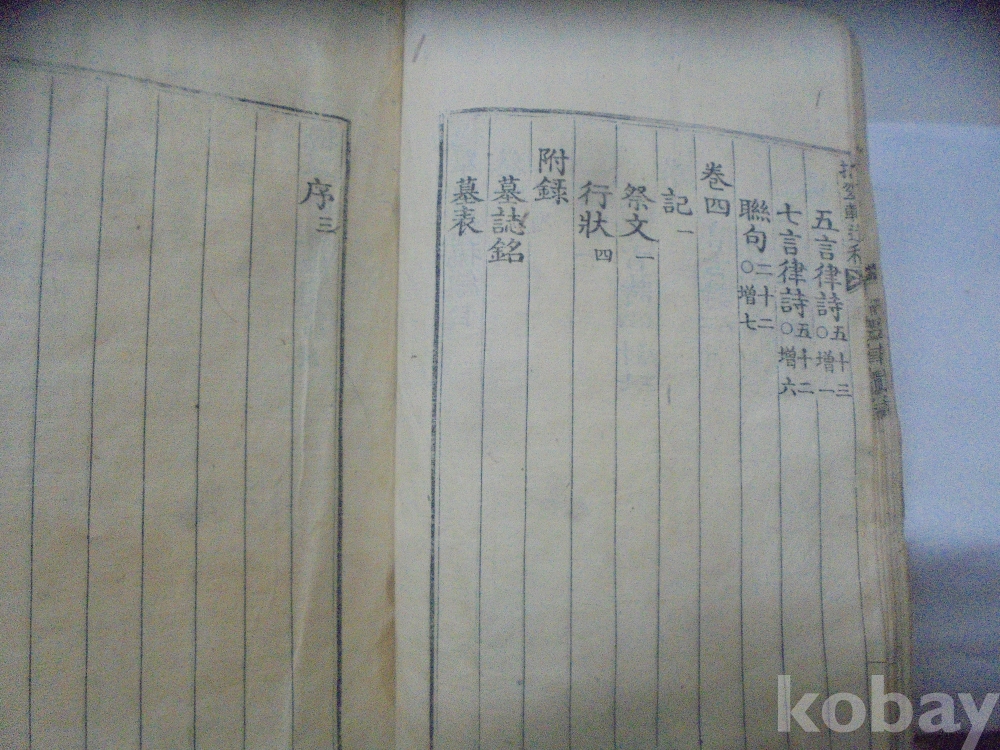 五言律詩 五十三 ○增一
七言律詩 五十二 ○增六
聯句 二十二 ○增七
卷四
記 一
祭文 一
行狀 四
附錄
墓誌銘
墓表
序 三
kobay